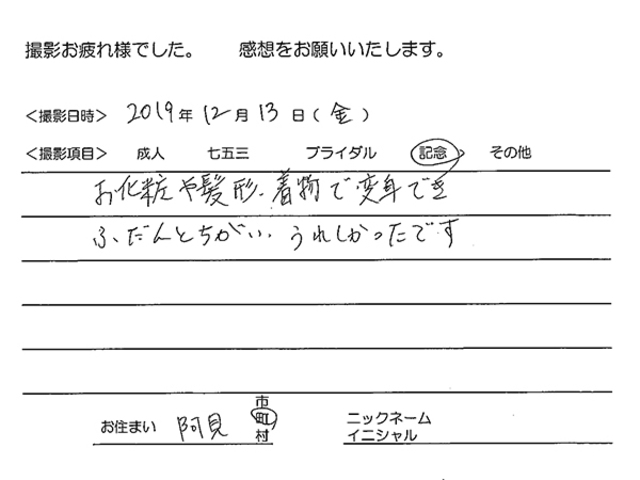 撮影お疲れ様でした。 感想をお願いいたします。
＜撮影日時＞ 2019年 12月 13日（金）
＜撮影項目＞ 成人 七五三 ブライダル 記念 その他
お化粧や髪形、着物で変身でき
ふだんとちがい、うれしかったです
お住まい 阿見 市町村 ニックネーム
イニシャル